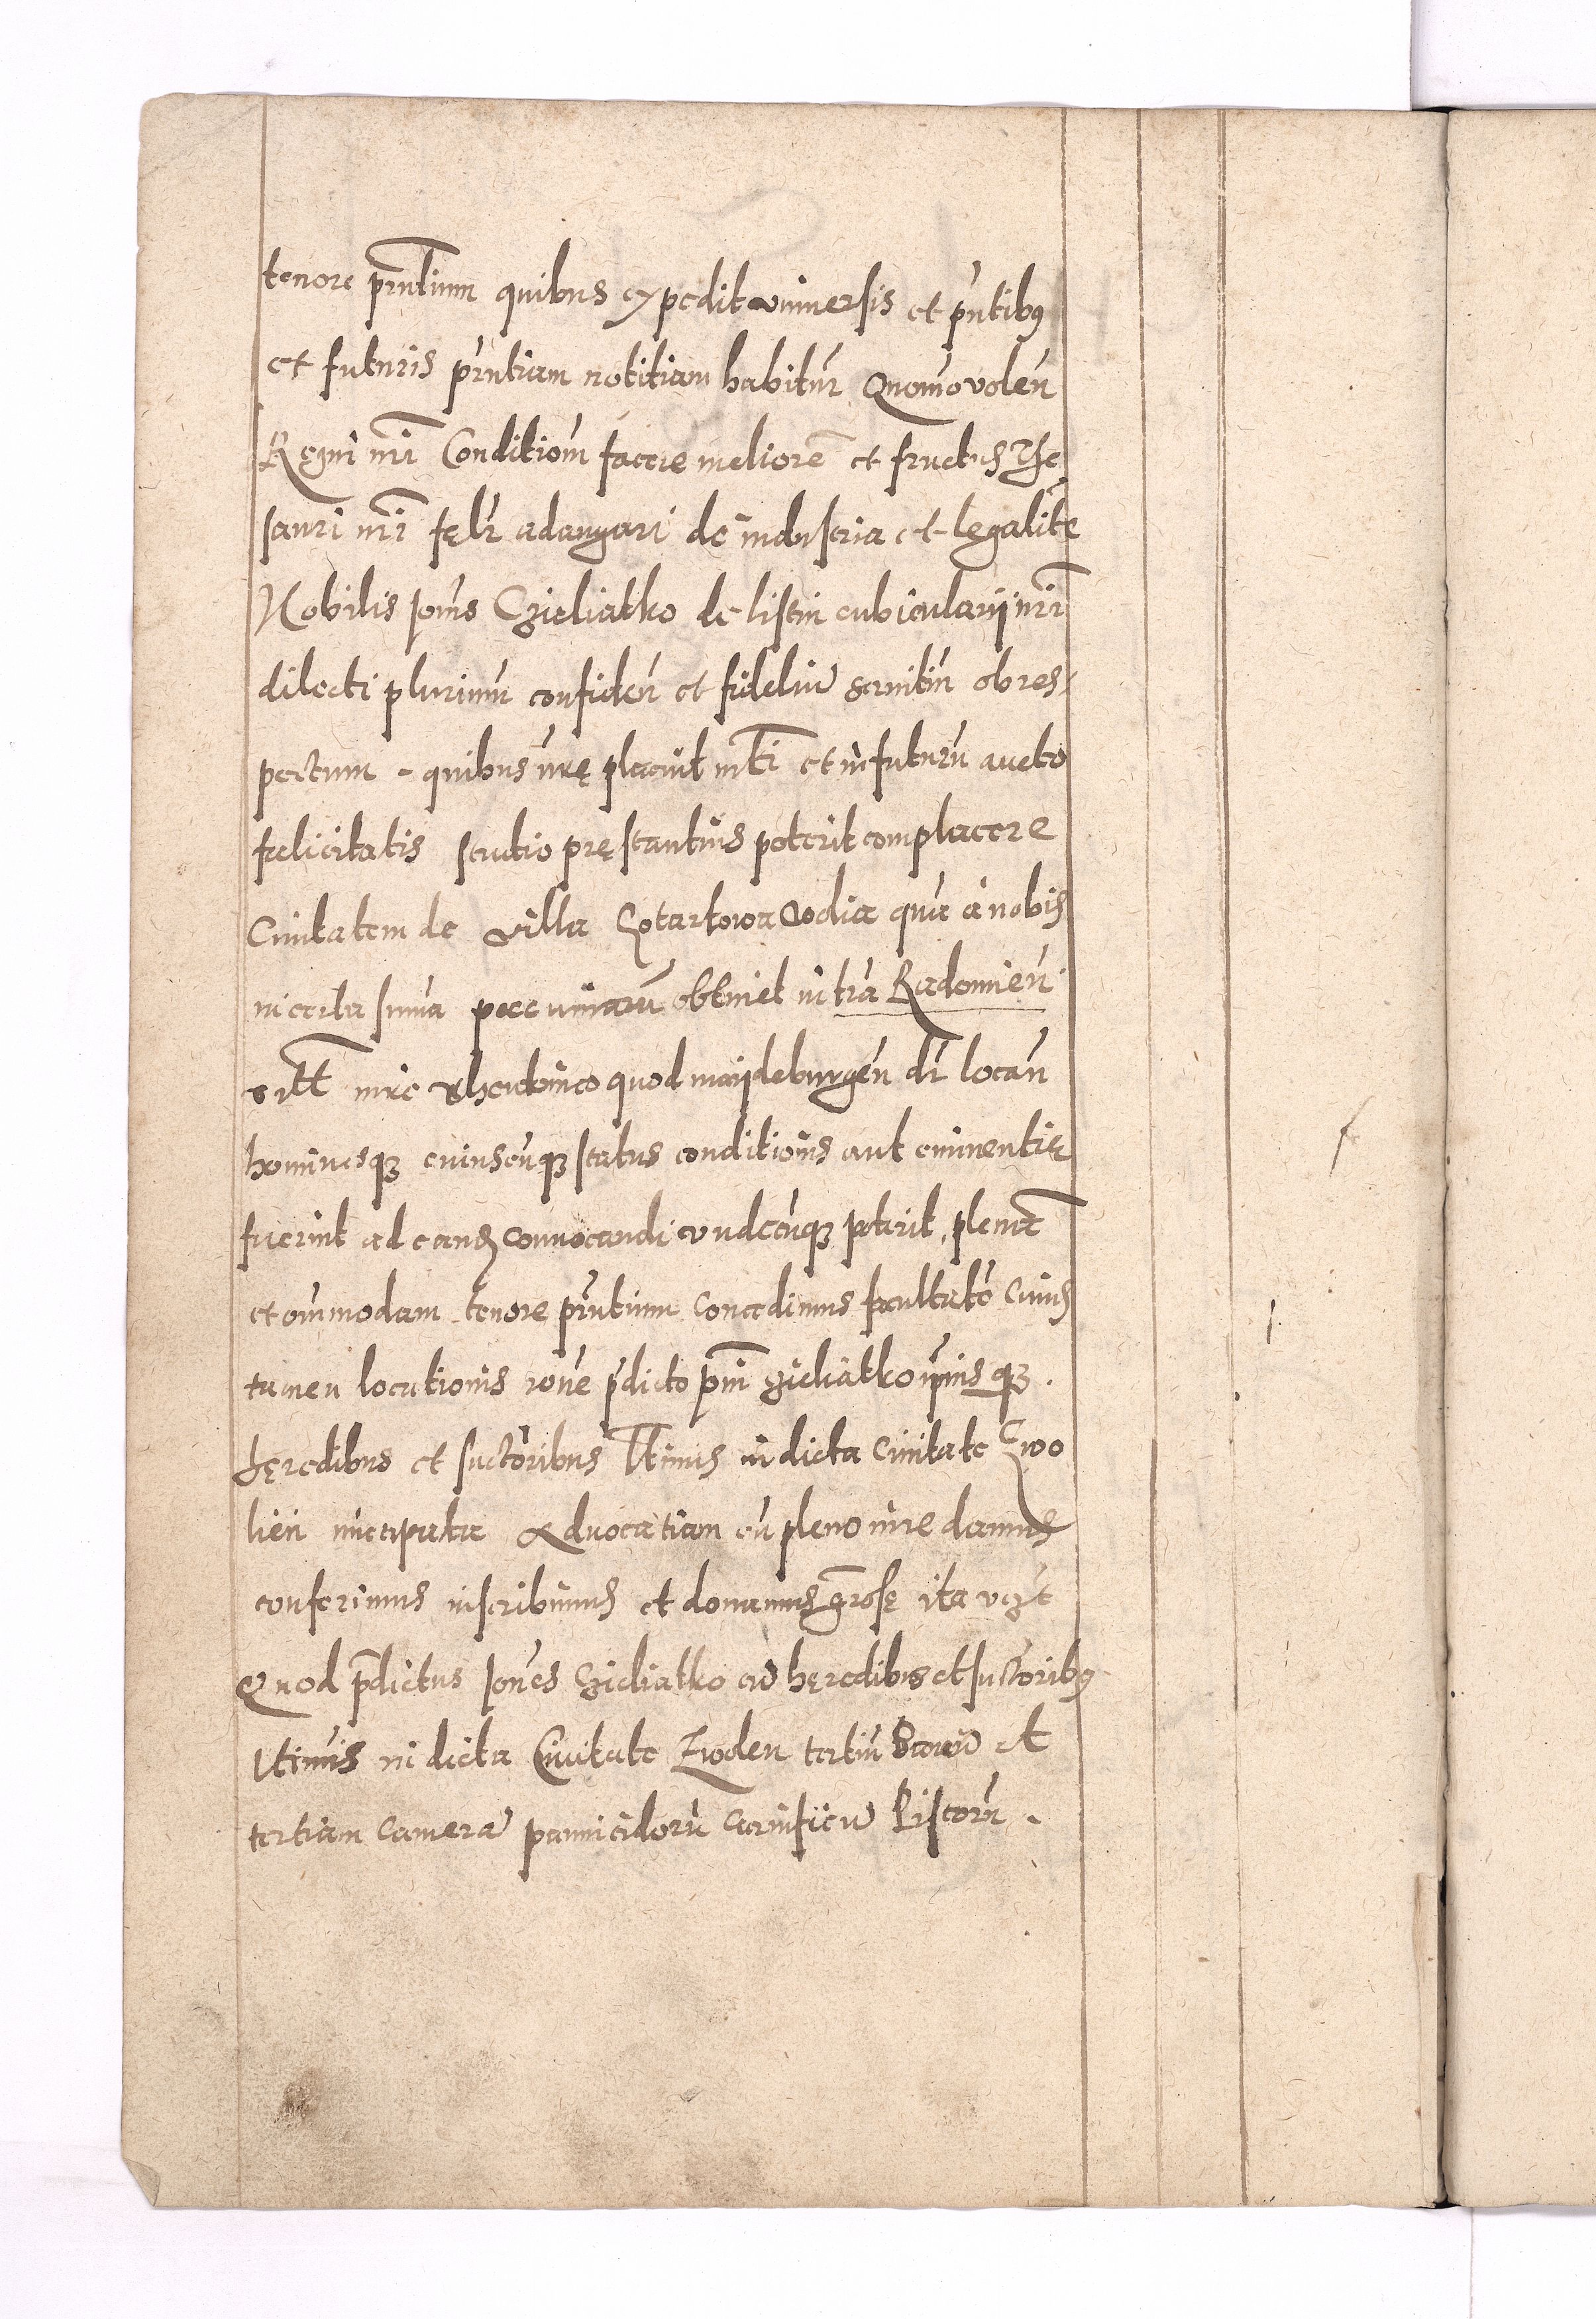 tenore pñtium quibus expedit universis et p̃ntibꝯ
et futuris p̃ntiam notitiam habitur̃ Quomo volen̄
Regni nr̄i Condition̄ facere meliorē et fructus The
sauri nr̄i felr̄ adaugari de industria et legalit̄e
Nobilis Joan̄is Czieliatko de listin cubicularij nr̄i
dilecti plurimū confiden̄ et fideliū servitiū ob res-
pectum - quibus nrę placuit mt̄i et in futurū aucto
felicitatis studio pręstantius poterit complacere
Civitatem de villa Gotartowa Volia quā à nobis
in certa sum̄a peccuniarū obtinet in tr̄a Radomien̄
sitt̄ iure theutonico quod maijdeburgen̄ dr̄ locan̄
hominesqꝫ cuiuscūqꝫ status conditioīs aut eminentię
fuerint ad eandꝫ convocandi undecūqꝫ poterit, plenā
et om̄modam tenore p̃ntium Concedimus facultatē Cuius
tamen locationis rōne p̃dicto Joan̄i Czieliatko ipsiusqꝫ.
hęredibus et suc̄toribus lt̄imis in dicta Civitate Zwo
lien̄ nuncupata Advocatiam cū pleno iure damus
conferimus inscribimus et donamus gr̄ose ita vcꝫt
Quod p̄dictus Joan̄es Czieliatko cū hęredibus et suc̄toribꝯ
lt̄imis in dicta Civitate Zwolen tertiū Banū et
tertiam camerā pannicidorū Carnificū Pistorū.